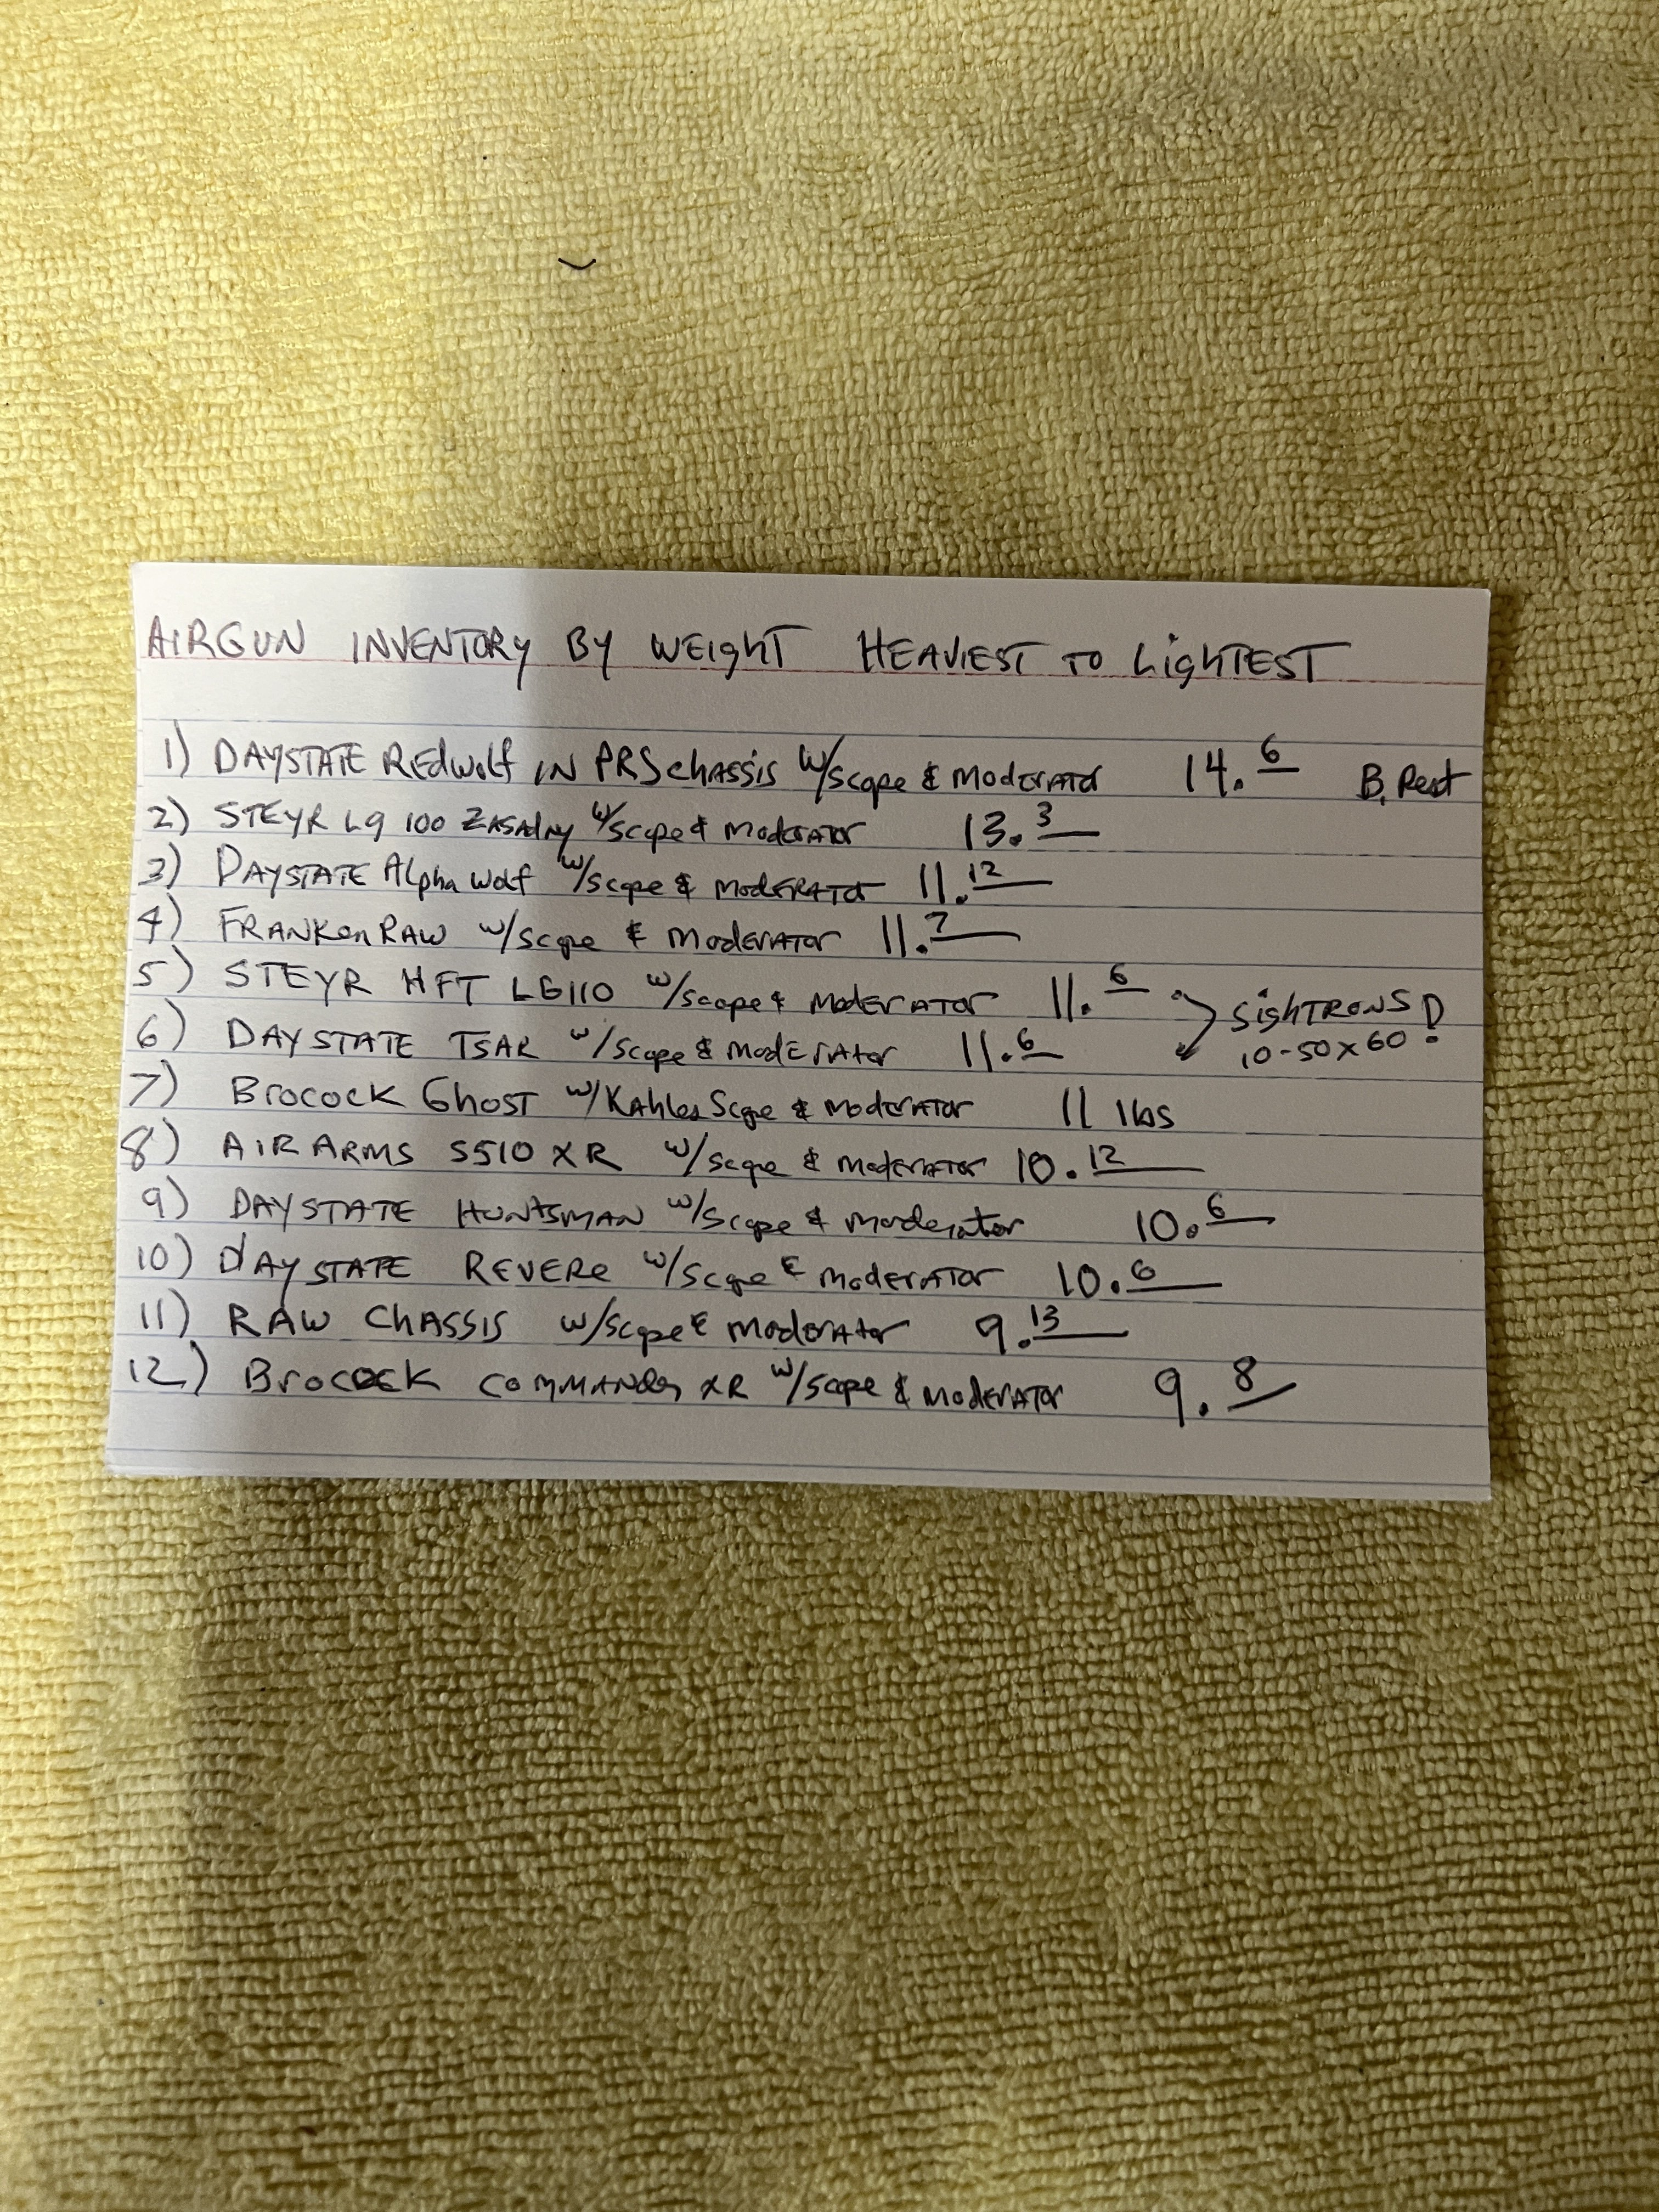 AIRGUN INVENTORY BY WEIGHT HEAVIEST TO LIGHTEST
1) DAYSTATE REdwolf IN PRS chassis w/scope & Moderator 14.6 B. Rest
2) STEYR LG 100 ZASADNY w/scope & Moderator 13.3
3) DAYSTATE Alpha Wolf w/scope & MODERATOR 11.12
4) FRANKEnRAW w/scope & Moderator 11.7
5) STEYR HFT LG110 w/scope & Moderator 11.6
SighTRONS!
6) DAYSTATE TSAR w/scope & Moderator 11.6
10-50x60
7) Brocock Ghost w/Kahles Scope & Moderator 11 lbs
8) AIR ARMS S510 XR w/scope & Moderator 10.12
9) DAYSTATE HUNTSMAN w/scope & Moderator 10.6
10) DAYSTATE REVERE w/scope & Moderator 10.6
11) RAW CHASSIS w/scope & Moderator 9.13
12) Brocock COMMANDER XR w/scope & Moderator 9.8